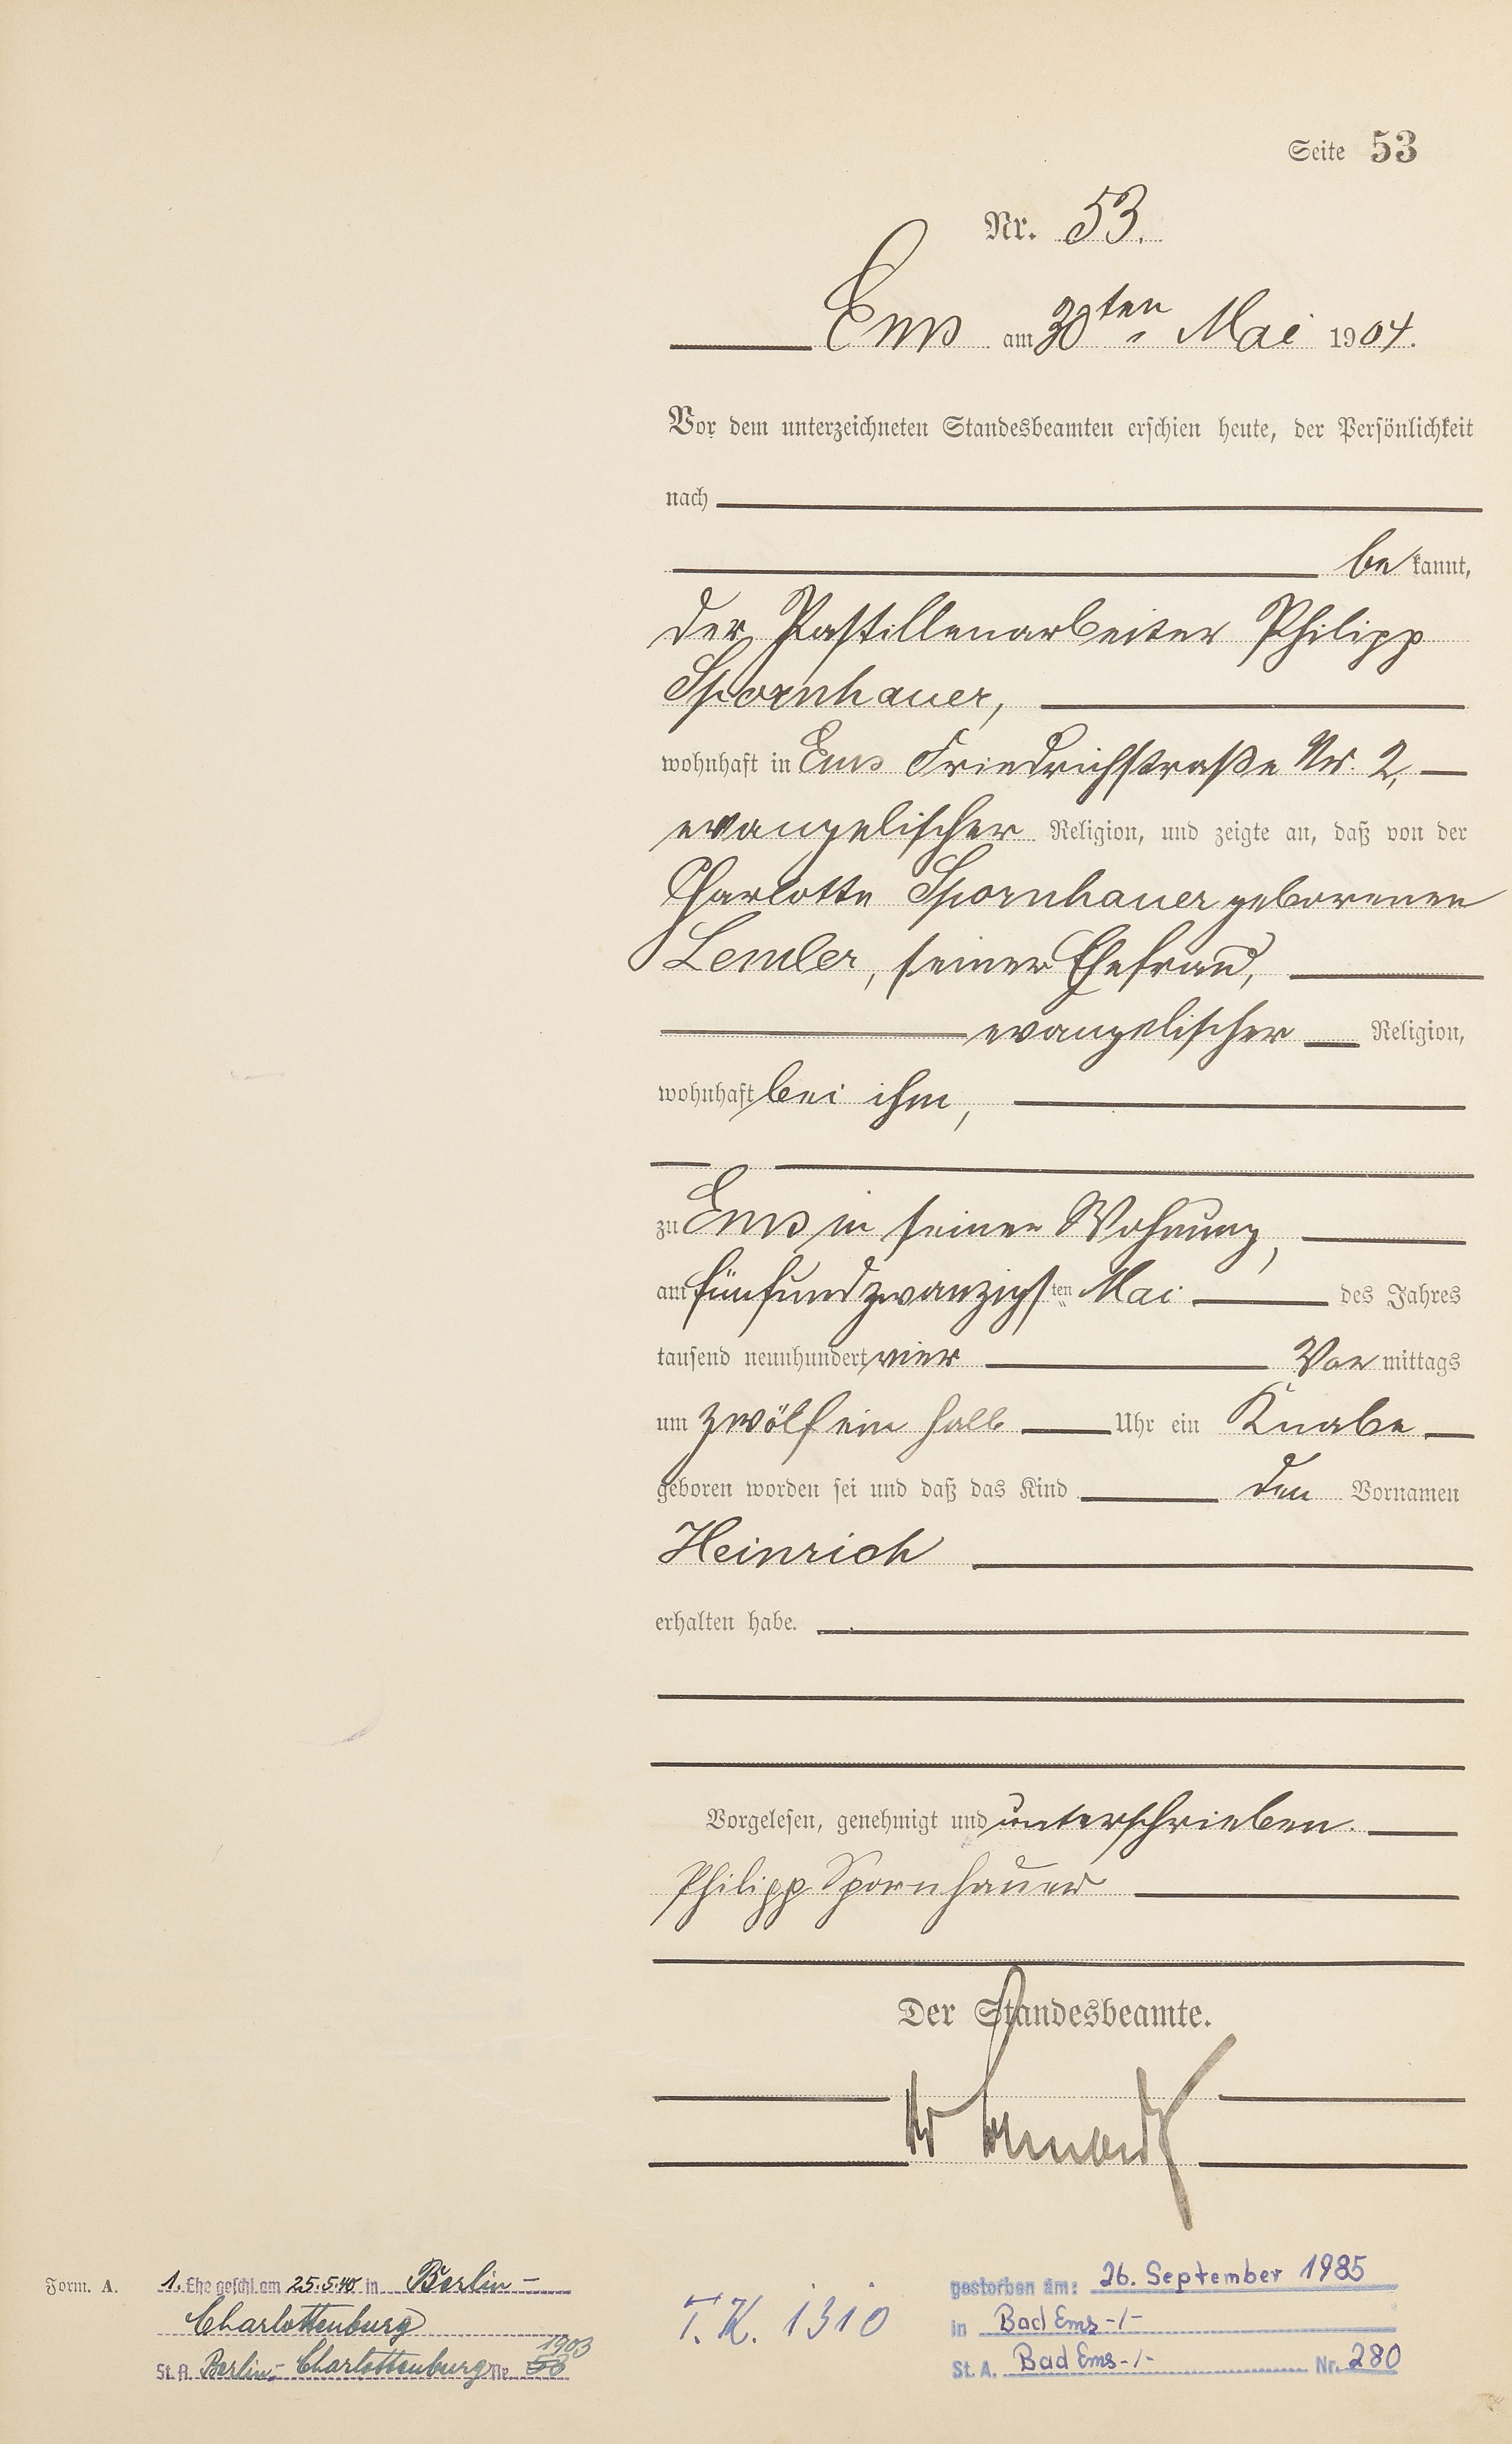 Seite 53
Nr. 53.
Ems am 30ten Mai 1904.
Vor dem unterzeichneten Standesbeamten erschien heute, der Persönlichkeit
nach
bekannt,
der Pastillenarbeiter Philipp
Spornhauer,
wohnhaft in Ems Friedrichstraße Nr. 2,
evangelischer Religion, und zeigte an, daß von der
Charlotte Spornhauer geborenen
Lemler, seiner Ehefrau,
evangelischer Religion,
wohnhaft bei ihm,
zu Ems in seiner Wohnung,
am fünfundzwanzigsten Mai des Jahres
tausend neunhundert vier Vormittags
um zwölfein halb Uhr ein Knabe
geboren worden sei und daß das Kind den Vornamen
Heinrich
erhalten habe.
Vorgelesen, genehmigt und unterschrieben.
Philipp Spornhauer
Der Standesbeamte.
Form. A.
1. Ehe geschl. am 25.5.40 in Berlin-
Charlottenburg
1903
St. A. Berlin-Charlottenburg Nr. 53
T. K. 1310
gestorben am: 26. September 1985
in Bad Ems -/-
St. A. Bad Ems -/- Nr. 280